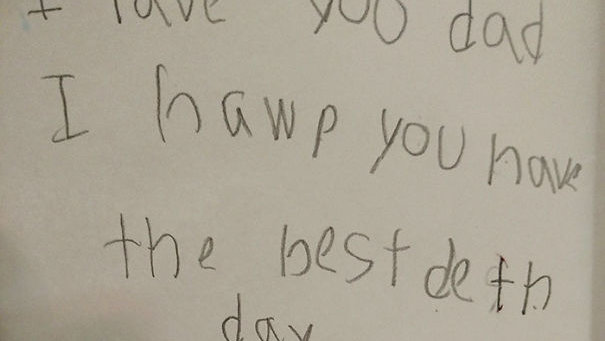 I lave you dad
I hawp you have
the best deth
day